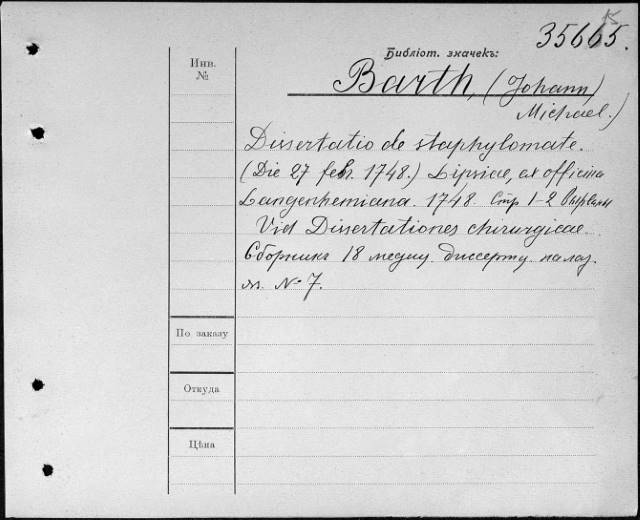 35665.
Библіот. значекъ:
Инв.
№
Barth, (Johann
Michael.)
Dissertatio de staphylomate.
(Die 27 febr. 1748.) Lipsiae, ex officina
Langenhemiana. 1748. Стр 1-2
Vid Dissertationes chirurgicae.
Сборникъ 18 медиц. диссерт.
№ 7.
По заказу
Откуда
Цѣна